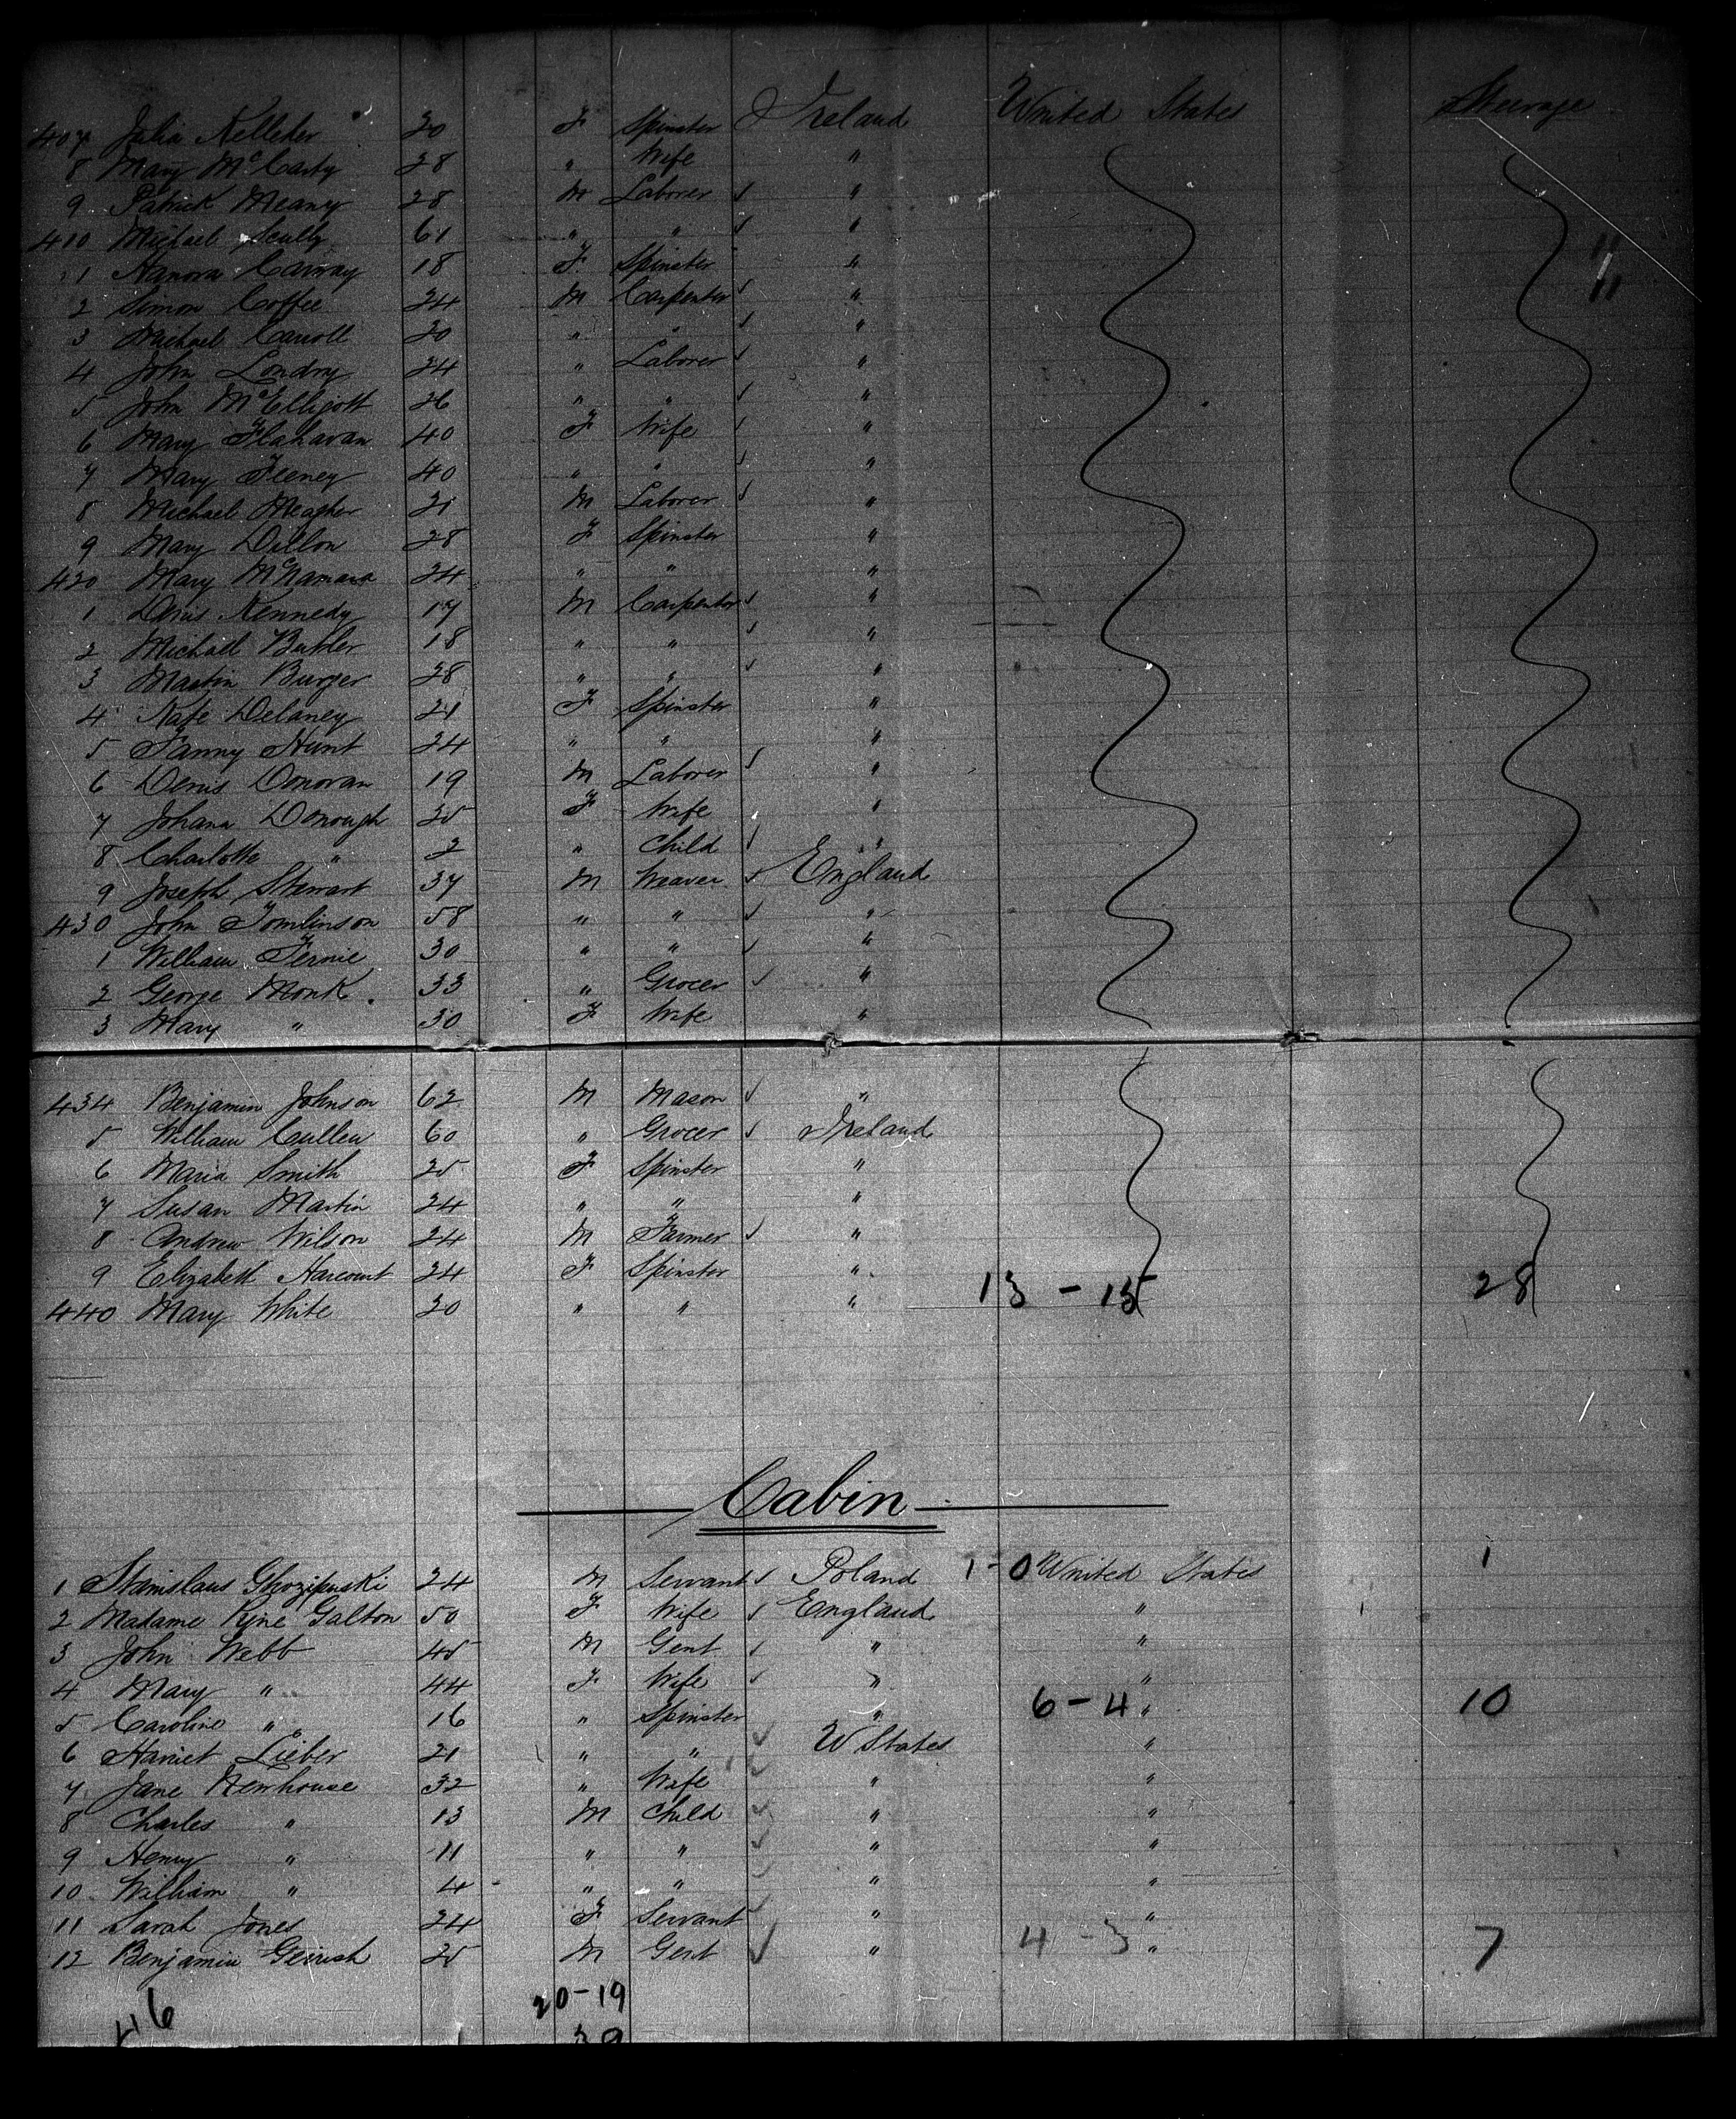 407 Julia Kelleher 20 F Spinster Ireland United States Steerage
8 Mary McCarty 28 " Wife "
9 Patrick Meany 28 M Laborer "
410 Michael Scully 61 " " "
11 Hanora 18 F Spinster "
2 Simon Coffee 24 M Carpenter "
3 Michael Carroll 20 " " "
4 John Londry 24 " Laborer "
5 John McElligott 26 " " "
6 Mary Flahavan 40 F Wife "
7 Mary Feeney 40 " " "
8 Michael Meagher 21 M Laborer "
9 Mary Dillon 28 F Spinster "
420 Mary McNamara 24 " " "
1 Denis Kennedy 17 M Carpenter "
2 Michael Butler 18 " " "
3 Martin Burger 28 " " "
4 Kate Delaney 21 F Spinster "
5 Fanny Hunt 24 " " "
6 Denis Donovan 19 M Laborer "
7 Johana Donough 35 F Wife "
8 Charlotte " 2 " Child "
9 Joseph Stewart 37 M Weaver England
430 John Tomlinson 58 " " "
1 William Fernie 30 " " "
2 George Monk 33 " Grocer "
3 Mary " 30 F Wife "
434 Benjamin Johnson 62 M Mason "
5 William Cullen 60 " Grocer Ireland
6 Maria Smith 25 F Spinster "
7 Susan Martin 24 " " "
8 Andrew Wilson 24 M Farmer "
9 Elizabeth Harcourt 24 F Spinster " 13 - 15 28
440 Mary White 20 " " "
Cabin
1 Stanislaus 24 M Servant Poland 1-0 United States 1
2 Madame Galton 50 F Wife England "
3 John Webb 45 M Gent " "
4 Mary " 44 F Wife " "
5 Caroline " 16 " Spinster " 6 - 4 " 10
6 Harriet Lieber 21 " " U States "
7 Jane Newhouse 32 " Wife " "
8 Charles " 13 M Child " "
9 Henry " 11 " " " "
10 William " 4 " " " "
11 Sarah Jones 24 F Servant " "
12 Benjamin Gerrish 25 M Gent " 4 - 3 " 7
20-19
39